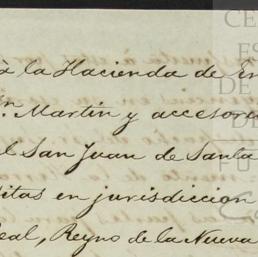 à la Hacienda de En
n. Martin y accesori
l San Juan de Santa
itas en jurisdiccion
eal, Reyno de la Nueva
CE
ES
DE
DE
FU